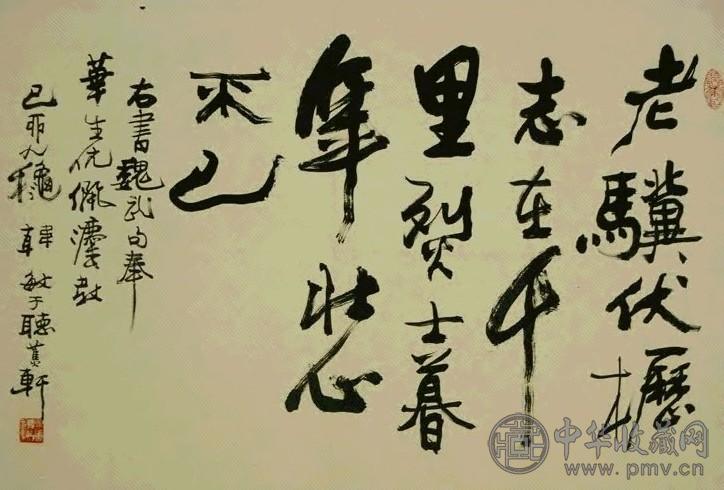 老驥伏櫪
志在千
里烈士暮
年壮心
不已
右書魏武句奉
華生伉儷灋教
韓敏于聽蕉軒
中华收藏网
www.pmv.cn